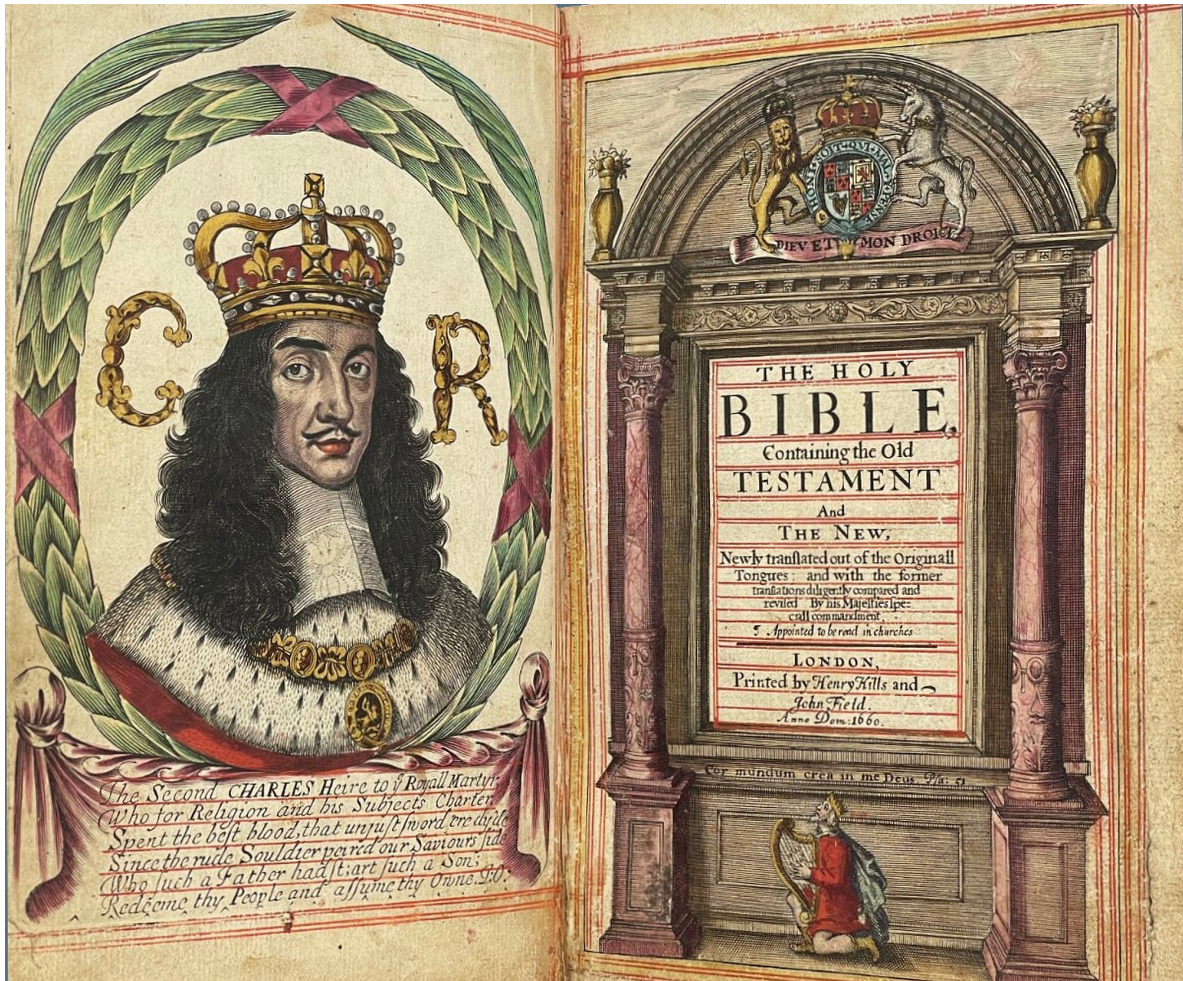 C R
The Second CHARLES Heire to yͤ Royall Martyr,
Who for Religion and his Subjects Charter,
Spent the best blood, that unjust sword ere dy'de
Since the rude Souldier peirced our Saviours side
Who such a Father hadst; art such a Son;
Redeeme thy People and assume thy Owne.
HONI SOIT QVI MAL Y PENSE
DIEV ET MON DROICT
THE HOLY
BIBLE,
Containing the Old
TESTAMENT
And
THE NEW,
Newly translated out of the Originall
Tongues: and with the former
translations diligently compared and
revised By his Majesties spe=
ciall commandment,
¶ Appointed to be read in churches
LONDON,
Printed by Henry Hills and
John Field.
Anno Dom: 1660.
Cor mundum crea in me Deus Psa: 51